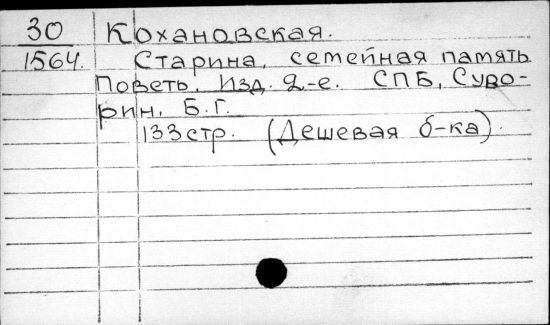 30 Кохановская.
1564. Старина, семейная память
Поветь. Изд. 2-е. СПБ, Суво-
рин, Б.Г.
133стр. (Дешевая б-ка).